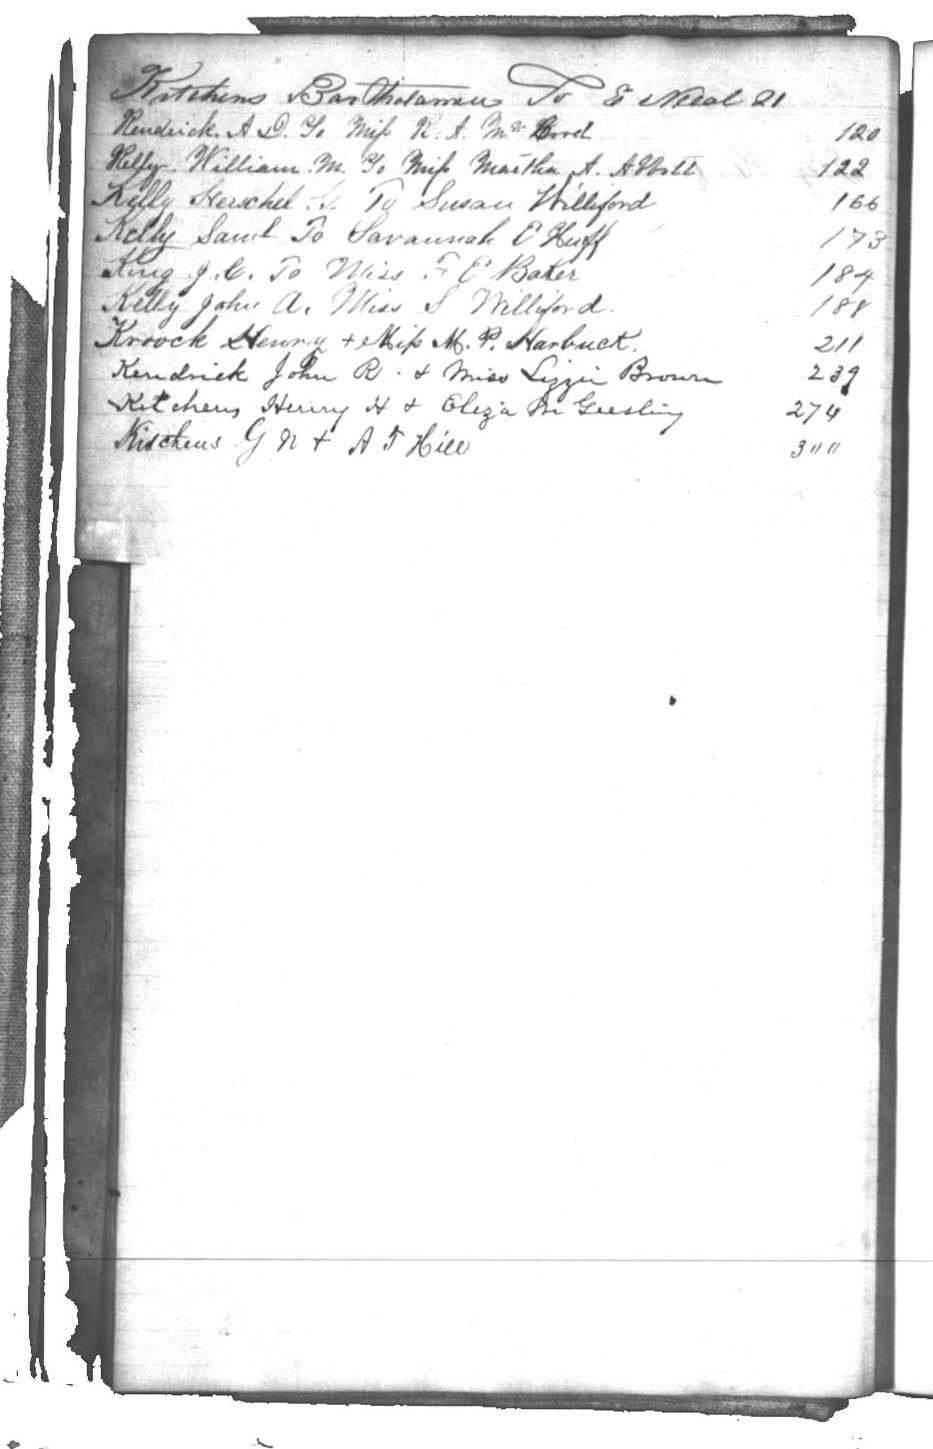 Kitchens Bartholamew To E Neal 21
Kendrick. A D. To Miss R. A. McCord 120
Kelly. William. M. To Miss Martha A. Abbott 122
Kelly Herschel To Susan Williford 166
Kelly Saml To Savannah E Huff 173
King J. C. To Miss F E Baker 184
Kelly John A. Miss S Williford. 188
Kroock Henry + Miss M. P. Harbuck. 211
Kendrick John R. & Miss Lizzie Brown 239
Kitchens Henry H & Eliza M Geesling 274
Kischens G N + A F Hill 300